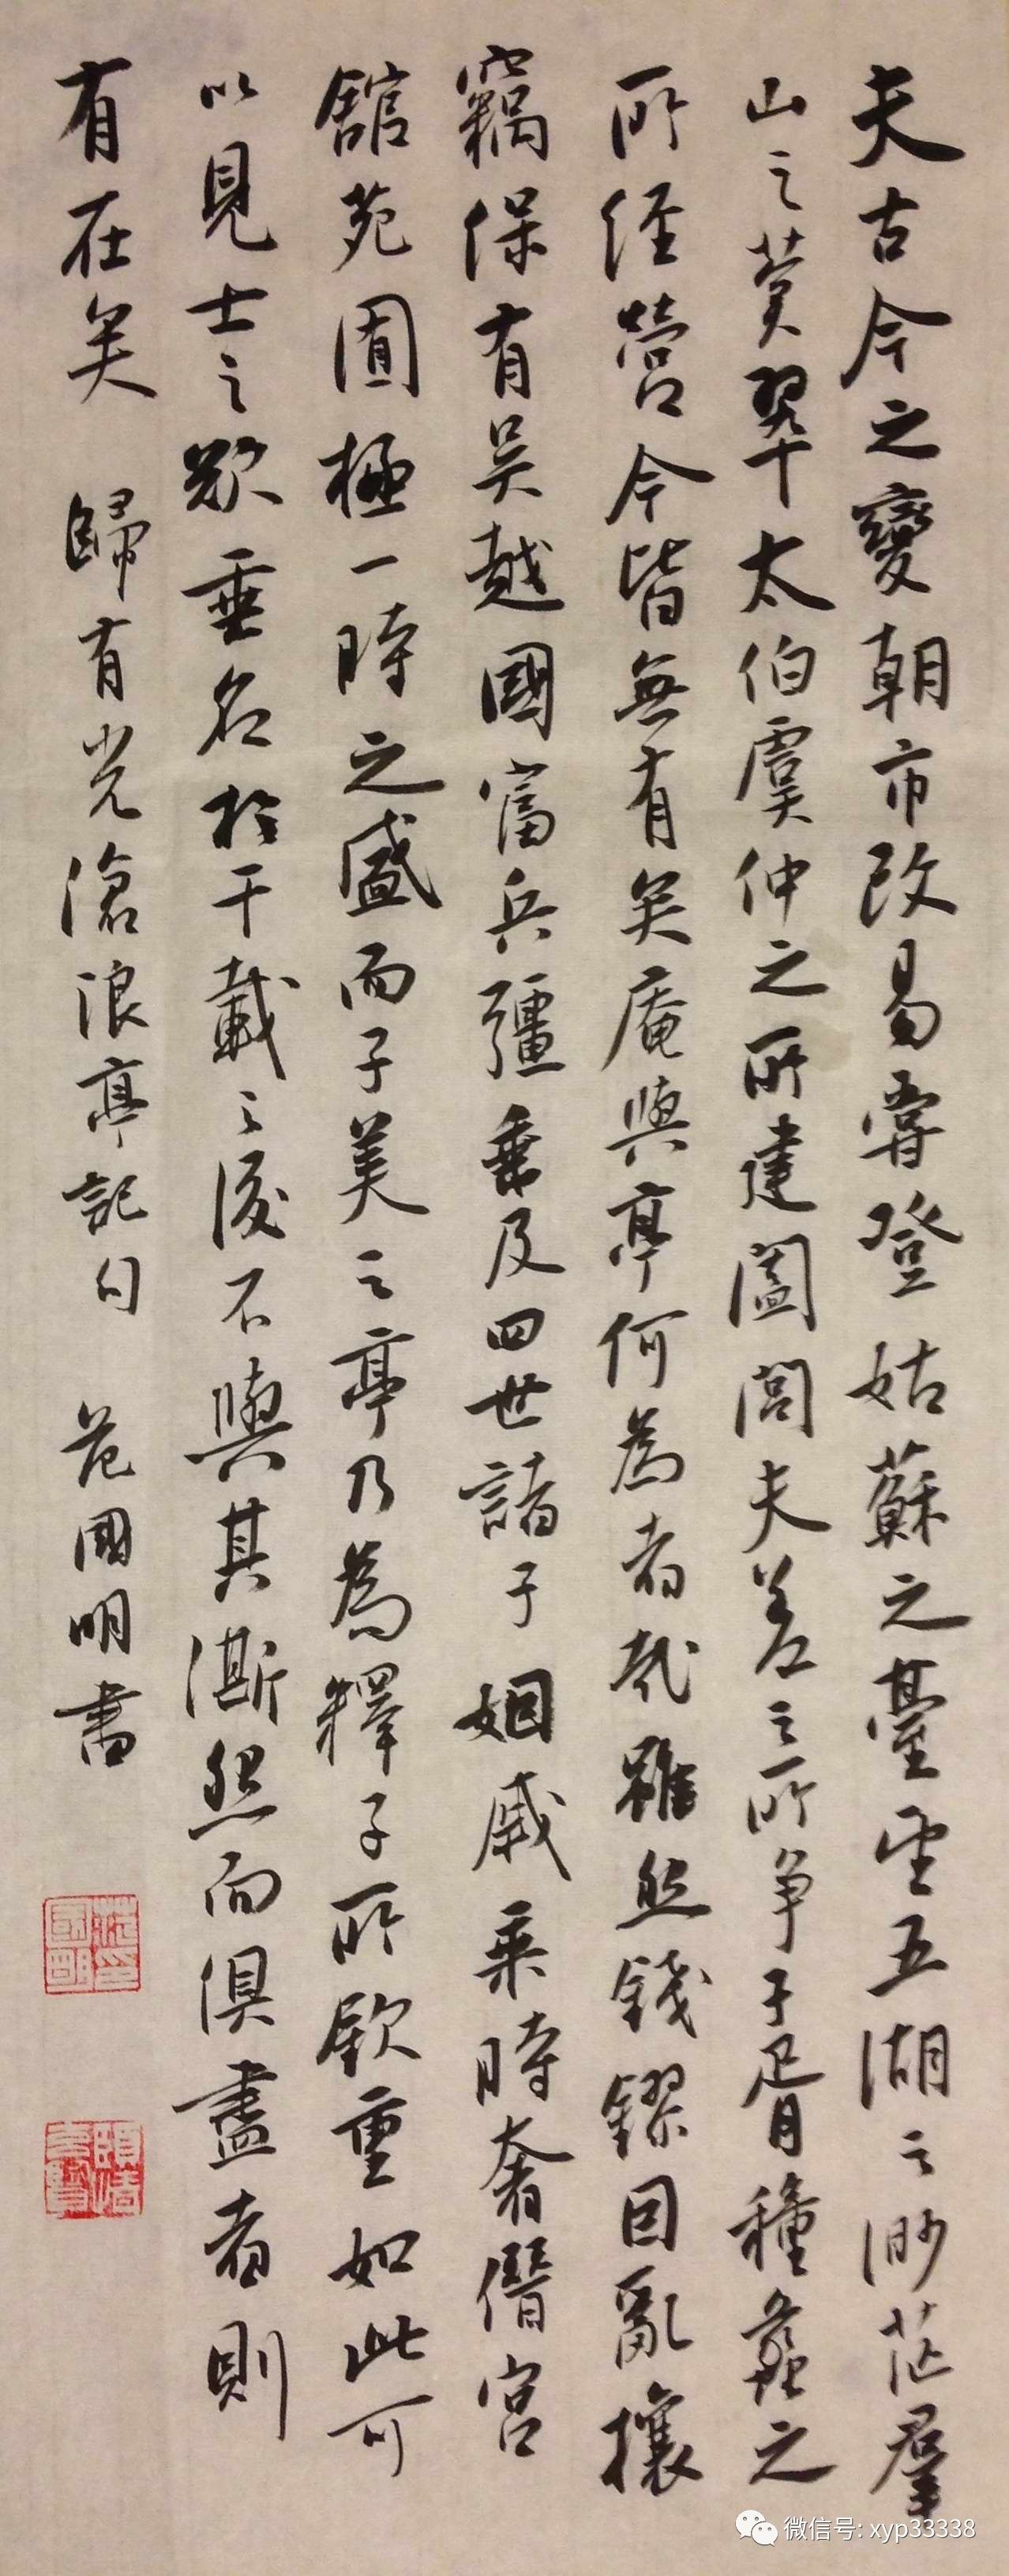 夫古今之變朝市改易嘗登姑蘇之臺望五湖之渺茫羣
山之蒼翠太伯虞仲之所建闔閭夫差之所爭子胥種蠡之
所經營今皆無有矣庵與亭何為者哉雖然錢鏐因亂攘
竊保有吳越國富兵疆垂及四世諸子姻戚乘時奢僭宮
館苑囿極一時之盛而子美之亭乃為釋子所欽重如此可
以見士之欲垂名於千載之後不與其澌然而俱盡者則
有在矣 歸有光滄浪亭記句 范國明書
微信号: xyp33338